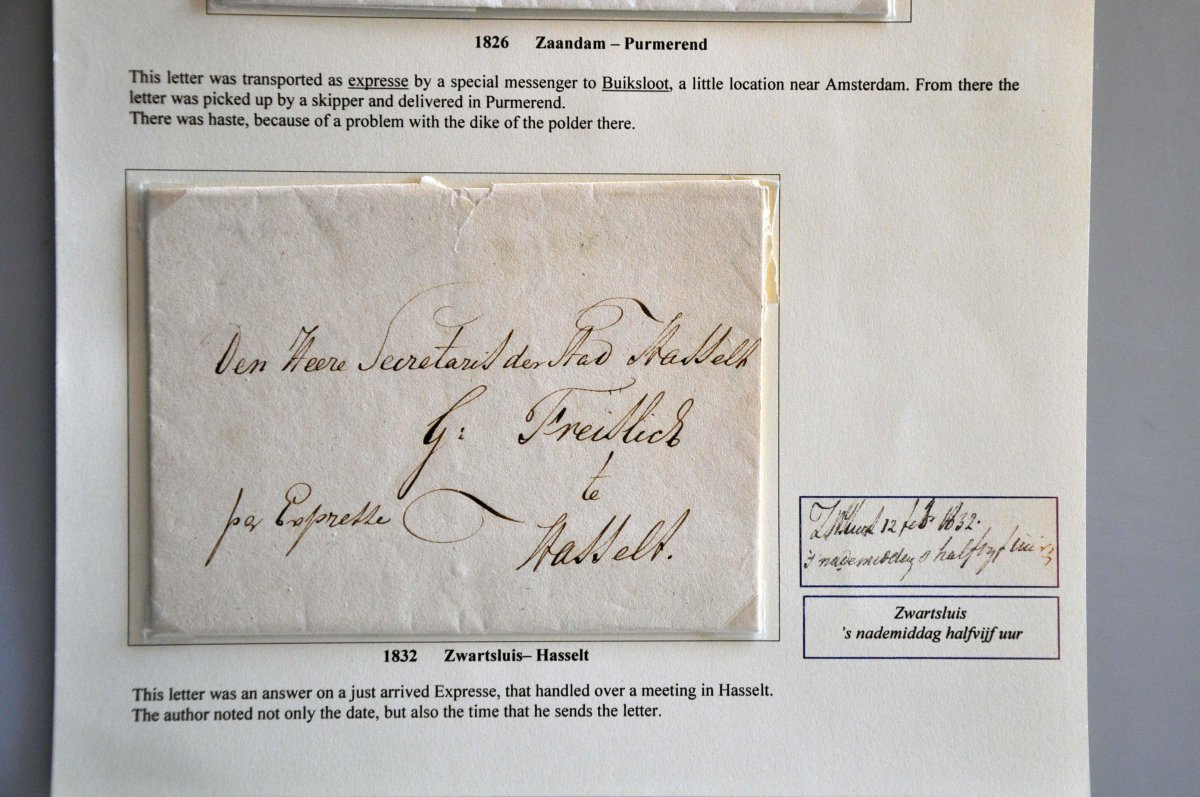 1826 Zaandam – Purmerend
This letter was transported as expresse by a special messenger to Buiksloot, a little location near Amsterdam. From there the
letter was picked up by a skipper and delivered in Purmerend.
There was haste, because of a problem with the dike of the polder there.
Den Heere Secretaris der Stad Hasselt
G: Freislich
te
per Expresse
Hasselt.
12 feb 1832.
's nademiddag halfvyf uur
Zwartsluis
's nademiddag halfvijf uur
1832 Zwartsluis– Hasselt
This letter was an answer on a just arrived Expresse, that handled over a meeting in Hasselt.
The author noted not only the date, but also the time that he sends the letter.